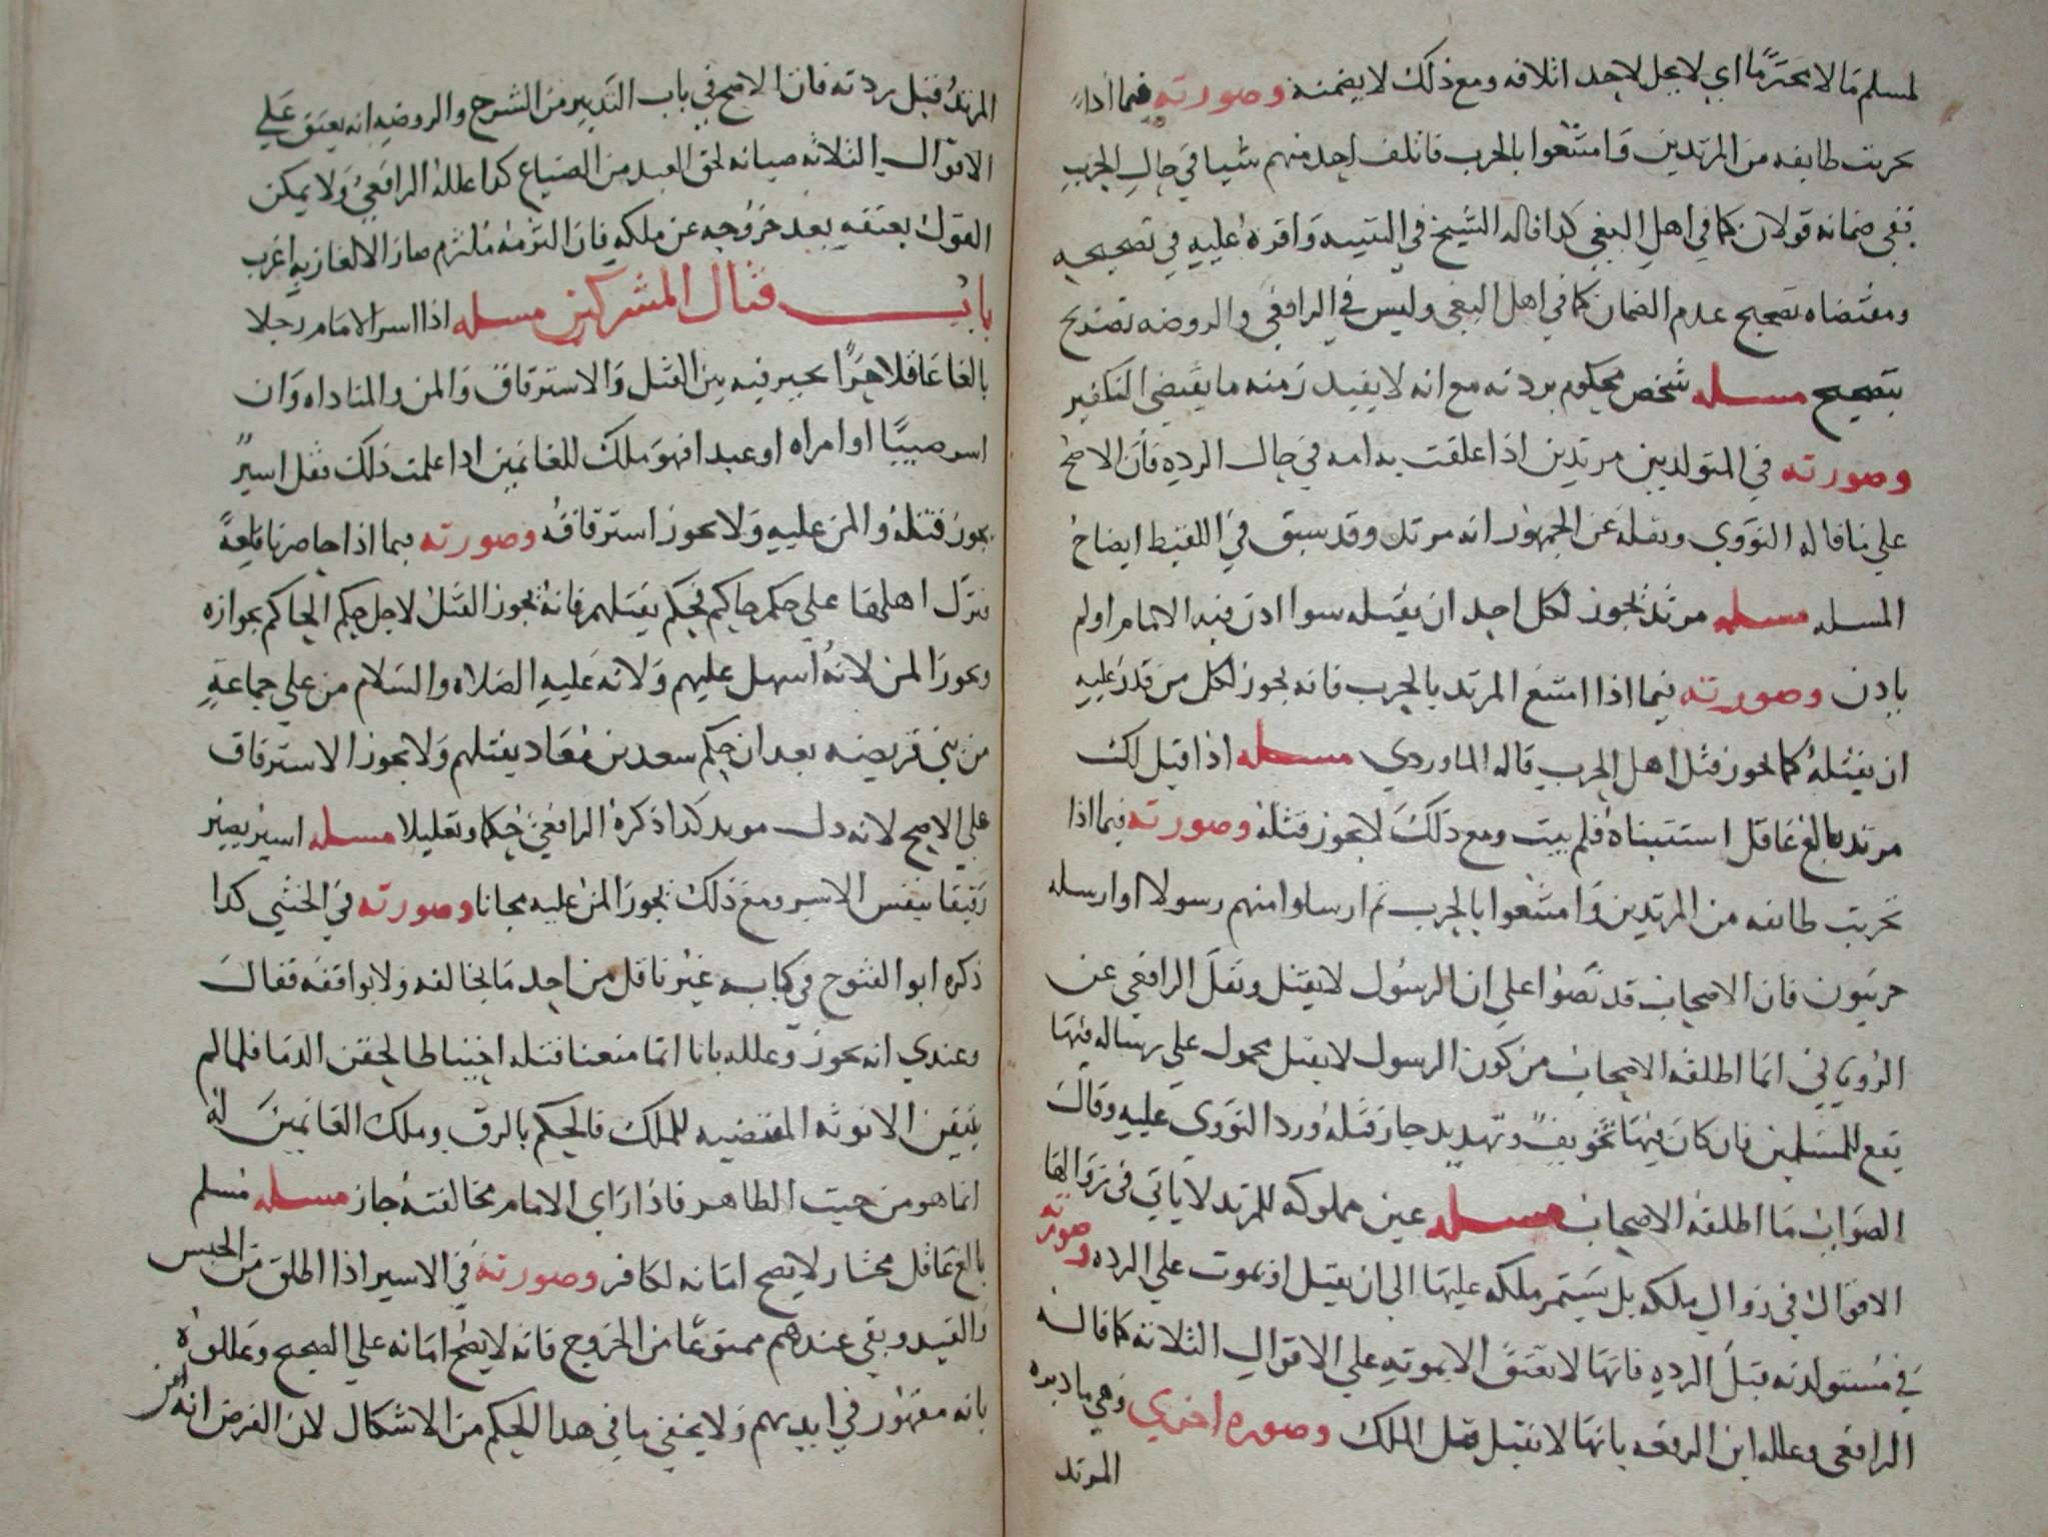 لمسلم مالا محترما اي لا يحل لاحد اتلافه ومع ذلك لا يضمنه وصورته فيما اذا
تحربت طايفه من المرتدين وامتنعوا بالحرب فاتلف احد منهم شيا في حال الحرب
ففي ضمانه قولان كما في اهل البغي كذا قاله الشيخ في التنبيه واقره عليه في تصحيحه
ومقتضاه تصحيح عدم الضمان كما في اهل البغي وليس في الرافعي والروضه تصريح
بتصحيح مسله شخص محكوم بردته مع انه لا يفيد زمنه ما يقتضي التكفير
وصورته في المتولد بين مرتدين اذا علقت به امه في حال الرده فان الاصح
علي ما قاله النووي ونقله عن الجمهور انه مرتد وقد سبق في اللقيط ايضاح
المسله مسله مرتد يجوز لكل احد ان يقتله سوا اذن فيه الامام او لم
ياذن وصورته فيما اذا امتنع المرتد بالحرب فانه يجوز لكل من قدر عليه
ان يقتله كما يجوز قتل اهل الحرب قاله الماوردي مسله اذا قيل لك
مرتد بالغ عاقل استتبناه فلم يتب ومع ذلك لا يجوز قتله وصورته فيما اذا
تحربت طايفه من المرتدين وامتنعوا بالحرب ثم ارسلوا منهم رسولا او ارسله
حربيون فان الاصحاب قد نصوا علي ان الرسول لا يقتل ونقل الرافعي عن
الروياني انما اطلقه الاصحاب من كون الرسول لا يقتل محمول علي رساله فيها
نفع للمسلمين فان كان فيها تخويف وتهديد جاز قتله ورد النووي عليه وقال
الصواب ما اطلقه الاصحاب مسله عين مملوكه للمرتد لا ياتي في زوالها
الاقوال في زوال ملكه بل يستمر ملكه عليها الي ان يقتل او يموت علي الرده وصورته
في مستولدته قبل الرده فانها لا تعتق الا بموته علي الاقوال الثلاثه كما قاله
الرافعي وعلله ابن الرفعه بانها لا تقبل نقل الملك وصوره اخري وهي ما دبره
المرتد
المرتد قبل ردته فان الاصح في باب التدبير من الشرح والروضه انه يعتق علي
الاقوال الثلاثه صيانه لحق العبد من الضياع كذا علله الرافعي ولا يمكن
القول بعتقه بعد خروجه عن ملكه فان التزمه ملتزم صار الالغاز به اغرب
باب قتال المشركين مسله اذا اسر الامام رجلا
بالغا عاقلا حرا يخير فيه بين القتل والاسترقاق والمن والمفاداه وان
اسر صبيا او امراه او عبدا فهو ملك للغانمين اذا علمت ذلك فقل اسير
يجوز قتله والمن عليه ولا يجوز استرقاقه وصورته فيما اذا حاصرنا قلعة
فنزل اهلها علي حكم حاكم فحكم بقتلهم فانه يجوز القتل لاجل حكم الحاكم بجوازه
ويجوز المن لانه اسهل عليهم ولانه عليه الصلاه والسلام من علي جماعة
من بني قريضه بعد ان حكم سعد بن معاذ بقتلهم ولا يجوز الاسترقاق
علي الاصح لانه ذل موبد كذا ذكره الرافعي حكما وتعليلا مسله اسير يصير
رقيقا بنفس الاسر ومع ذلك يجوز المن عليه مجانا وصورته في الخنثي كذا
ذكره ابو الفتوح في كتابه غير ناقل من احد ما يخالفه ولا يوافقه فقال
وعندي انه يجوز وعلله بانا انما منعنا قتله احتياطا لحقن الدما فلما لم
يتيقن الانوثه المقتضيه للملك فالحكم بالرق وملك الغانمين له
انما هو من حيث الظاهر فاذا راي الامام مخالفته جاز مسله مسلم
بالغ عاقل مختار لا يصح امانه لكافر وصورته في الاسير اذا اطلق من الحبس
والقيد وبقي عندهم ممنوعا من الخروج فانه لا يصح امانه علي الصحيح وعللوه
بانه مقهور في ايديهم ولا يخفي ما في هذا الحكم من الاشكال لان الفرض انه